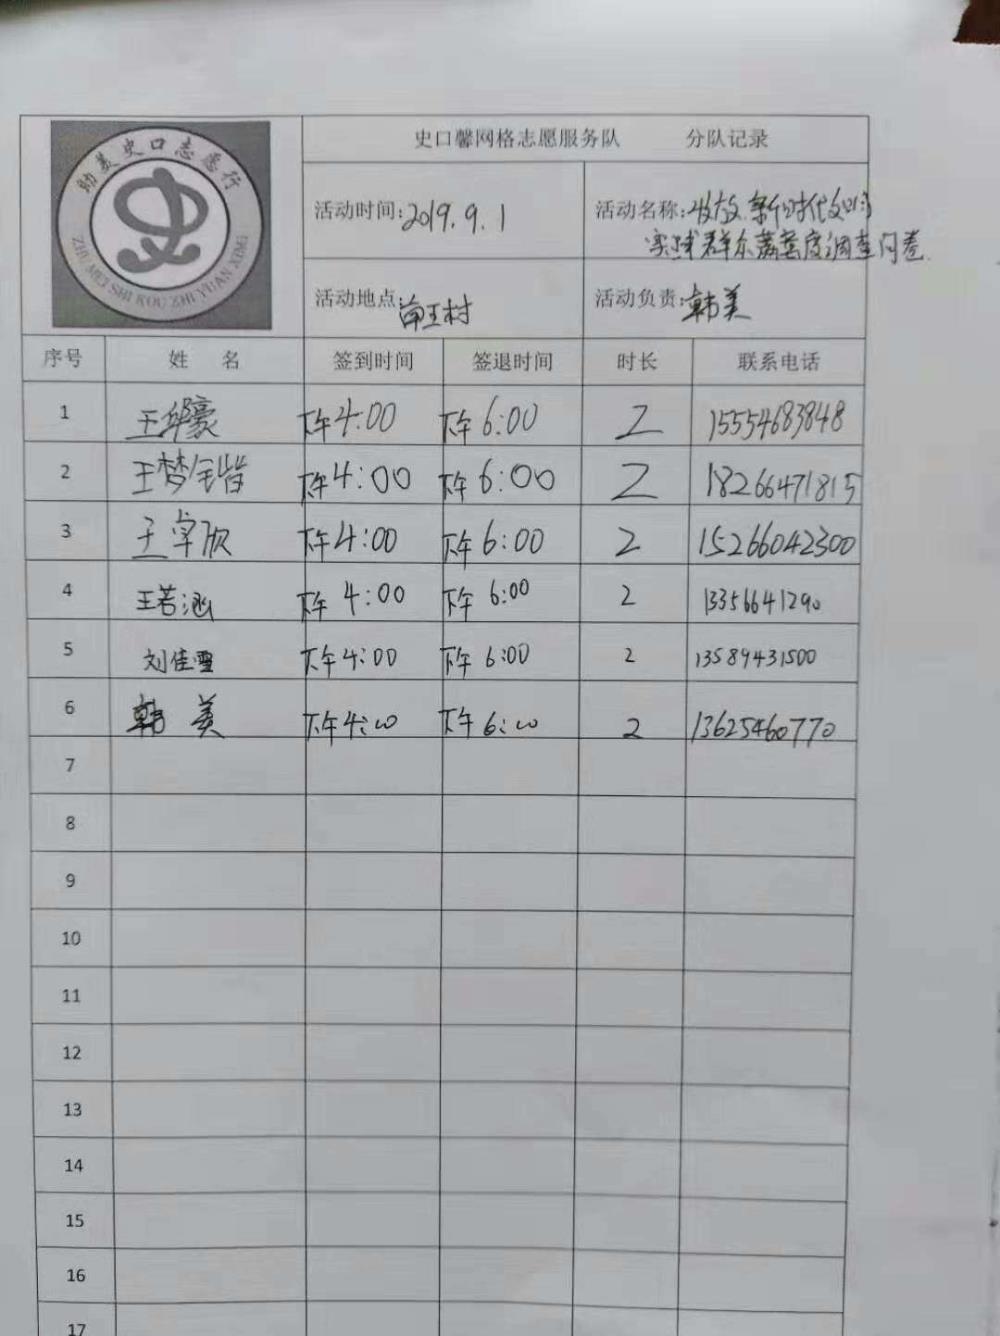 助美史口志愿行
ZHU MEI SHI KOU ZHI YUAN XING
史口馨网格志愿服务队 分队记录
活动时间:2019.9.1
活动名称:发放新时代文明
实践群众满意度调查问卷
活动地点 王村
活动负责:韩美
序号 姓 名 签到时间 签退时间 时长 联系电话
1 王华豪 下午4:00 下午6:00 2 15554683848
2 王梦 下午4:00 下午6:00 2 18266471815
3 王宇欣 下午4:00 下午6:00 2 15266042300
4 王若涵 下午4:00 下午6:00 2 13356641290
5 刘佳雪 下午4:00 下午6:00 2 13589431500
6 韩美 下午4:00 下午6:00 2 13625460770
7
8
9
10
11
12
13
14
15
16
17